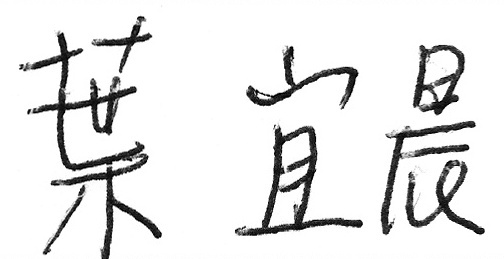 葉宜晨